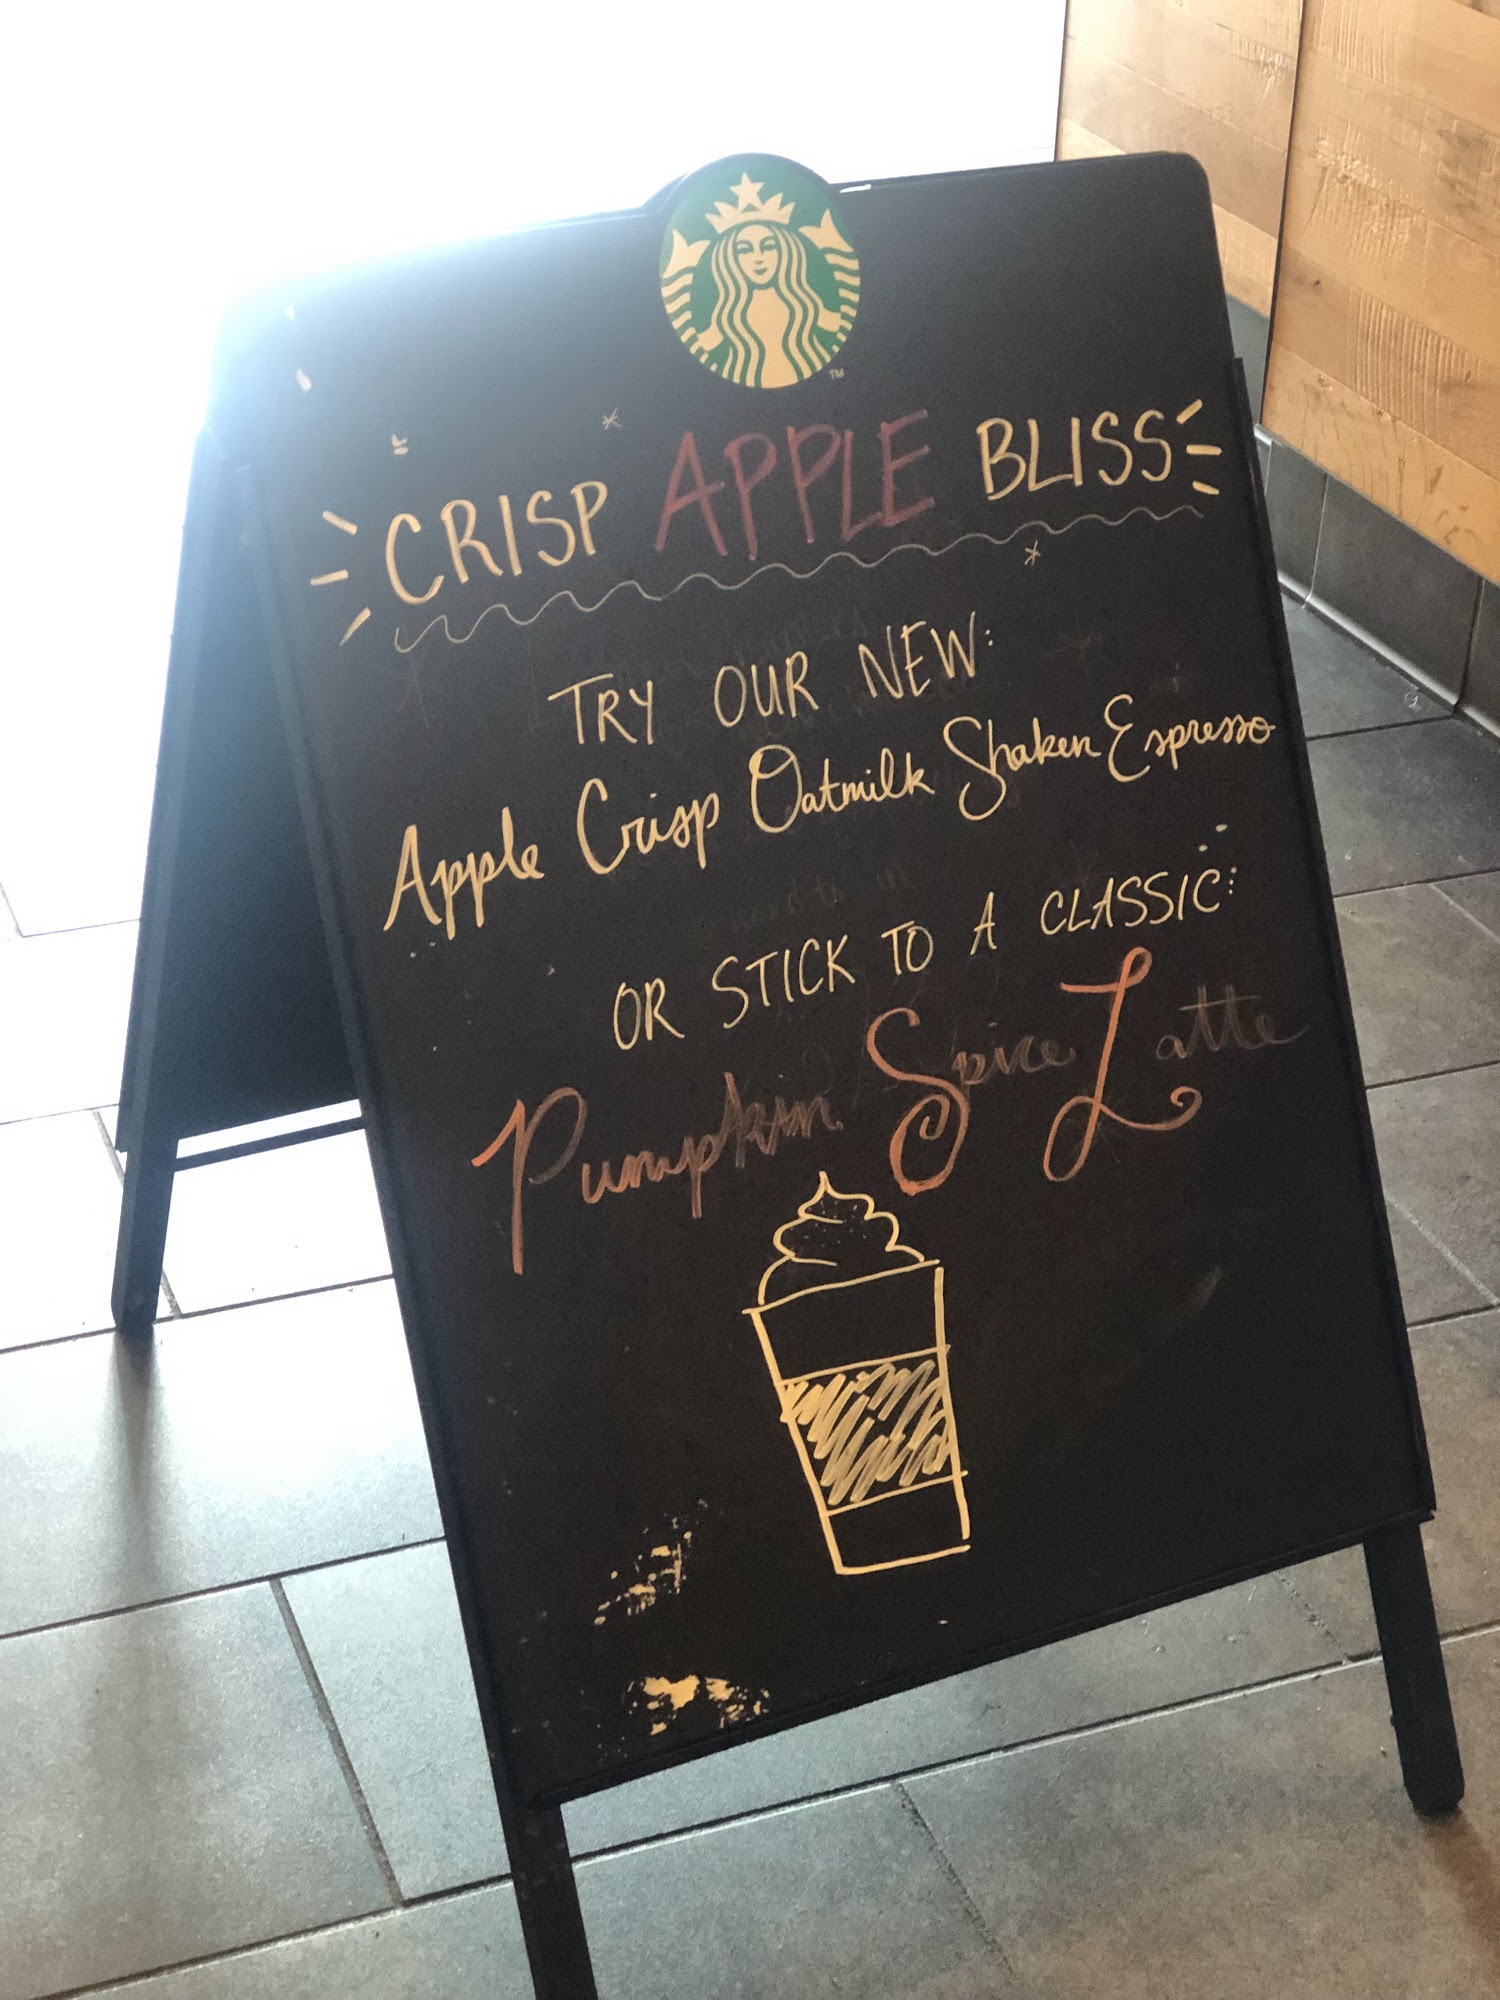 TM
CRISP APPLE BLISS
TRY OUR NEW:
Apple Crisp Oatmilk Shaken Espresso
OR STICK TO A CLASSIC:
Pumpkin Spice Latte